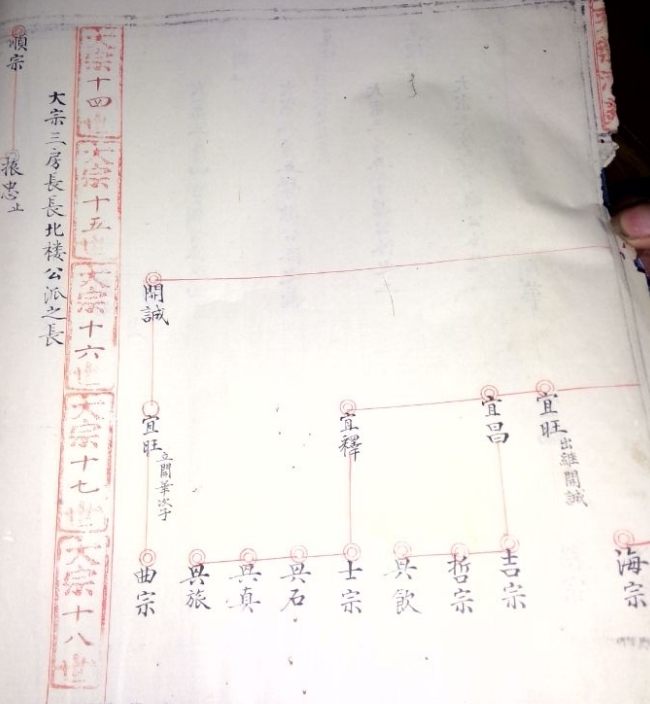 開誠
宜旺
出繼開誠
宜昌
宜釋
宜旺
立開華次子
海宗
吉宗
哲宗
具飲
士宗
具石
具真
具旅
曲宗
大宗十四世
大宗十五世
大宗十六世
大宗十七世
大宗十八世
大宗三房長長北楼公派之長
順宗
振忠止